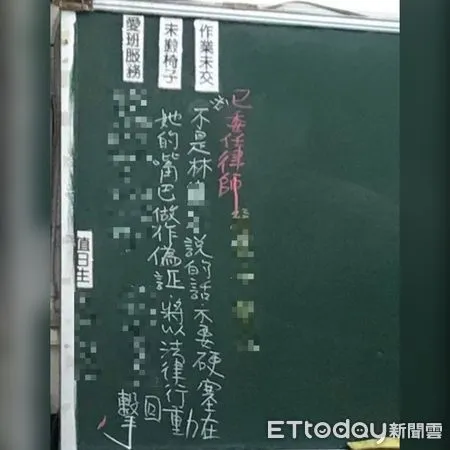 作業未交
未椅子
愛班服務
值日生
已委任律師
不是林說的話.不要硬塞在
她的嘴巴做作偽証.將以法律行動
回擊
ETtoday新聞雲